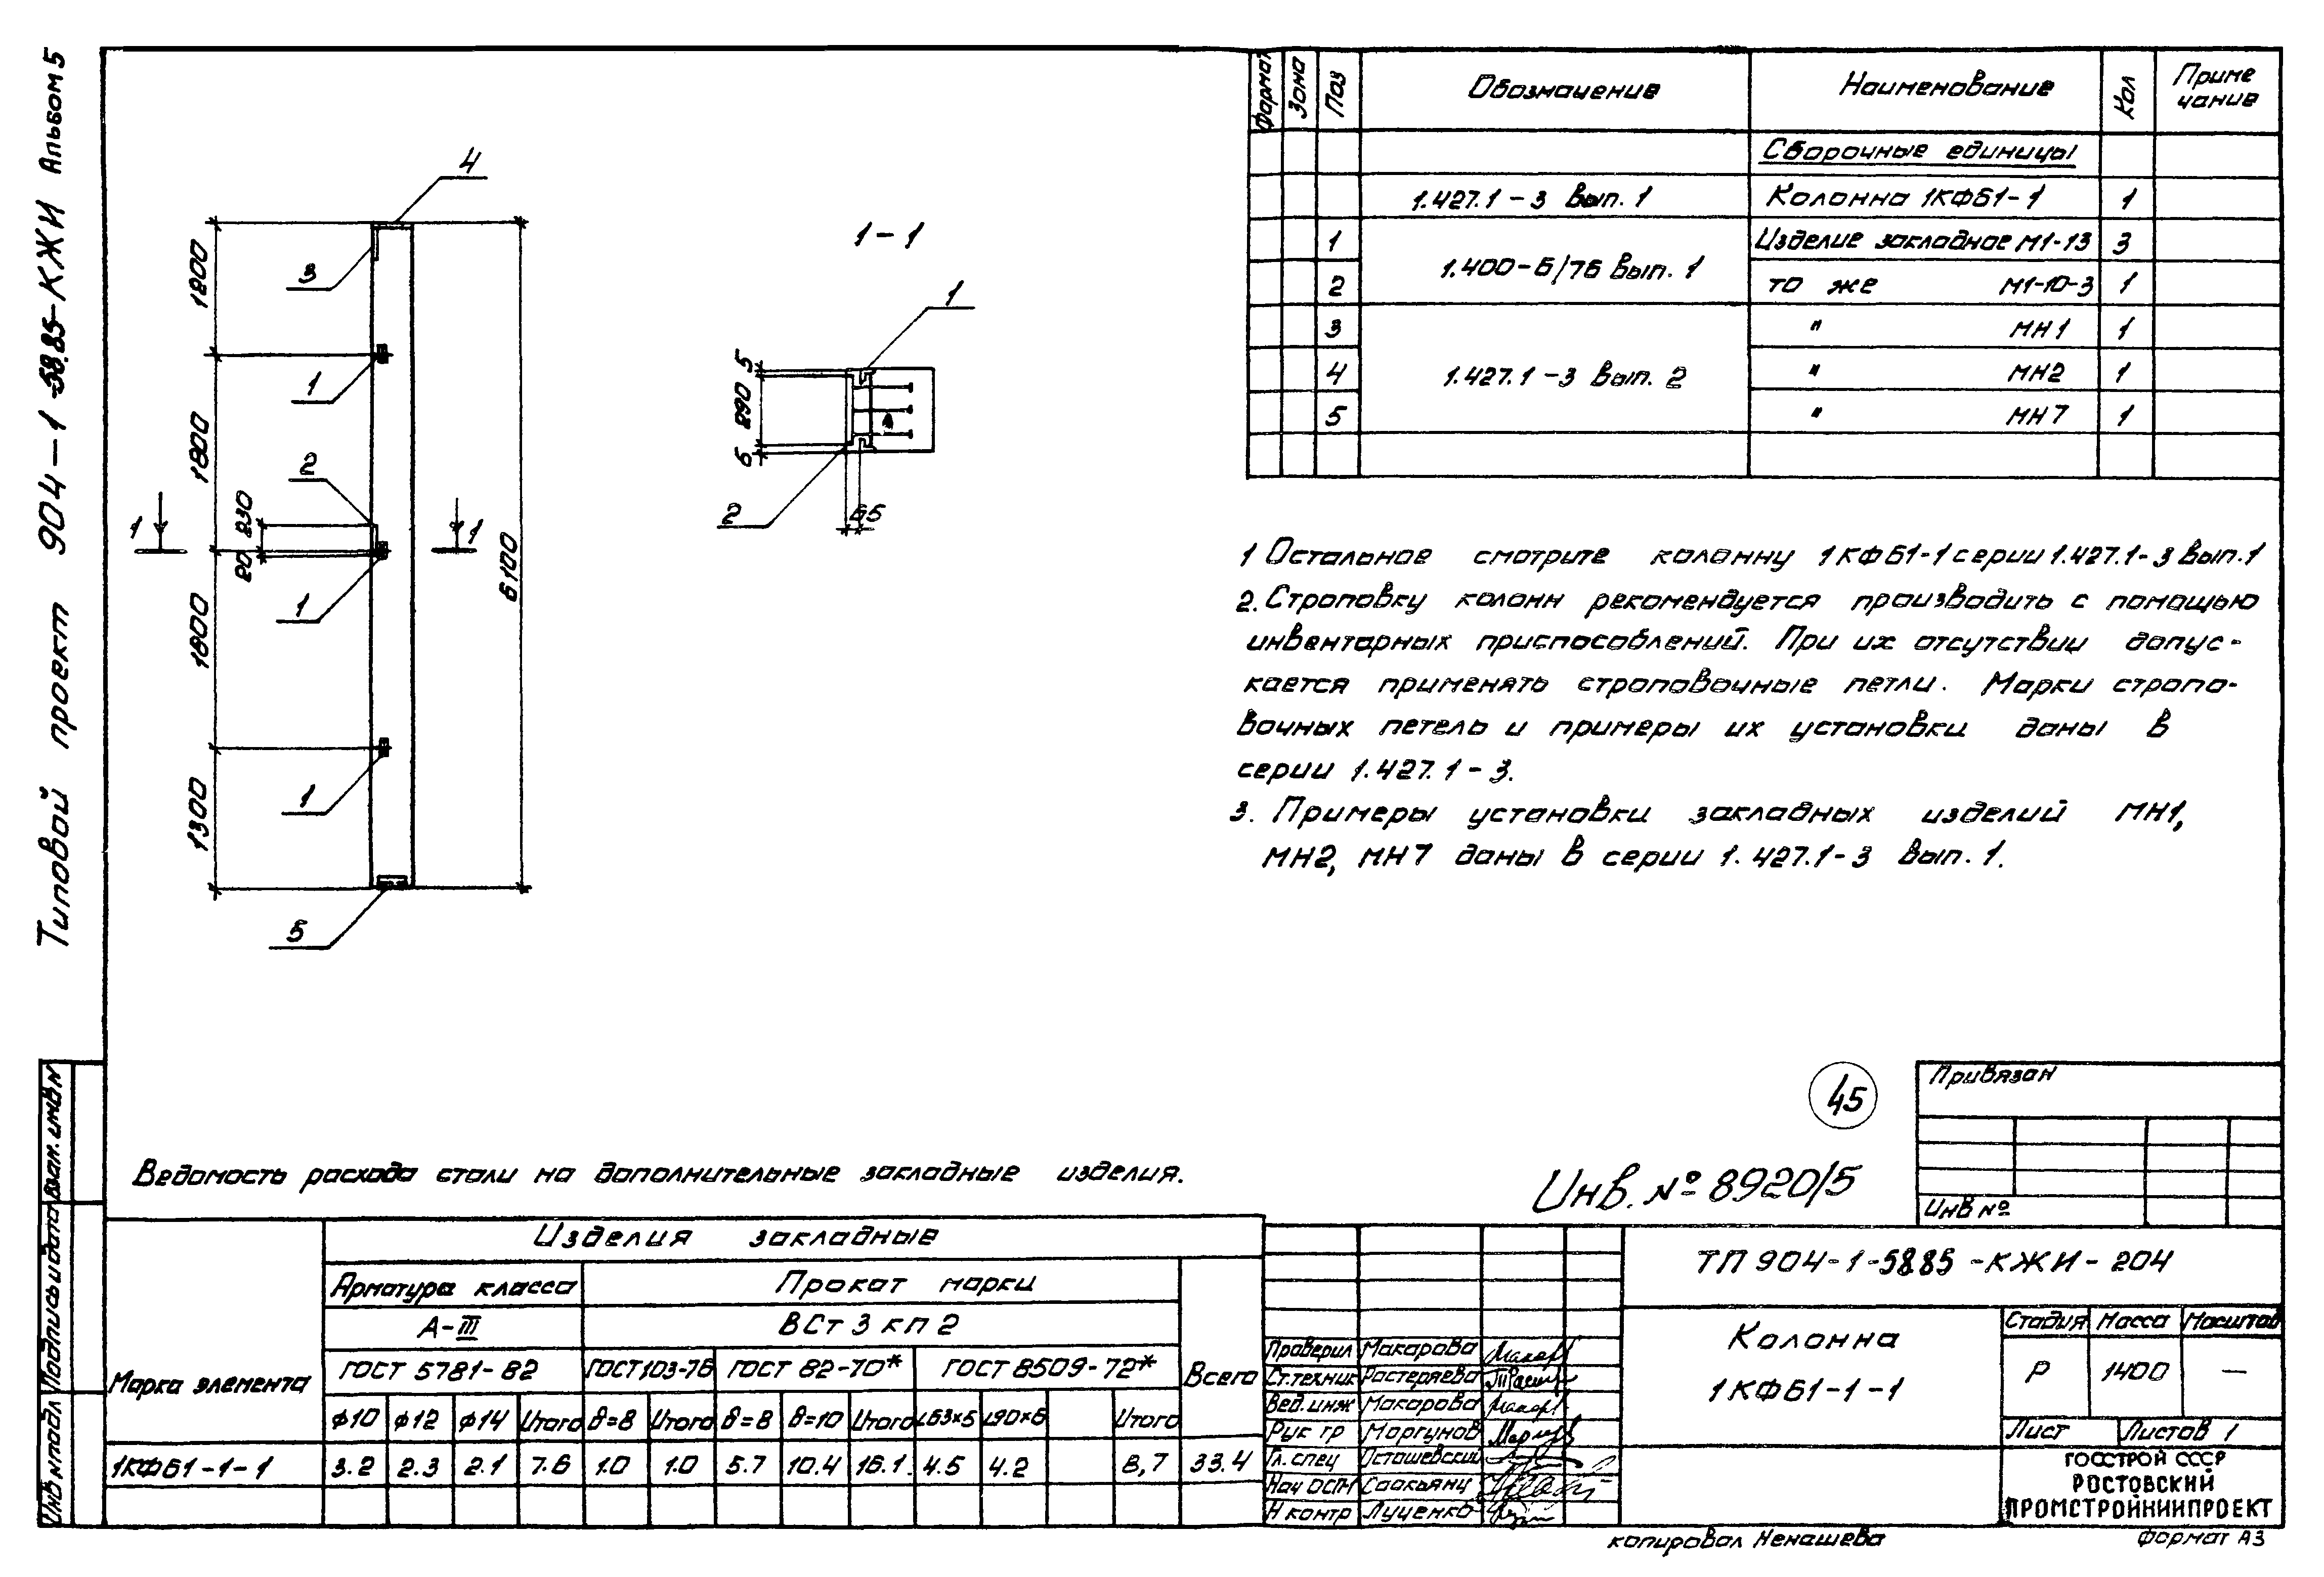 Типовой проект 904-1-58.85-КЖИ Альбом 5
4
3
1
2
1
1
5
1800
1800
1800
1300
230
20
6100
1 1
1-1
1
2
5
290
5
65
Формат Зона Поз Обозначение Наименование Кол Приме
чание
Сборочные единицы
1.427.1-3 Вып. 1 Колонна 1КФ61-1 1
1 1.400-6/76 Вып. 1 Изделие закладное М1-13 3
2 то же М1-10-3 1
3 " МН1 1
4 1.427.1-3 Вып. 2 " МН2 1
5 " МН7 1
1 Остальное смотрите колонну 1КФ61-1 серии 1.427.1-3 Вып.1
2. Строповку колонн рекомендуется производить с помощью
инвентарных приспособлений. При их отсутствии допус-
кается применять строповочные петли. Марки стропо-
вочных петель и примеры их установки даны в
серии 1.427.1-3.
3. Примеры установки закладных изделий МН1,
МН2, МН7 даны в серии 1.427.1-3 Вып. 1.
45
Инв. № 8920/5
Привязан
Инв №
Ведомость расхода стали на дополнительные закладные изделия.
Марка элемента Изделия закладные
Арматура класса Прокат марки Всего
А-III ВСт 3 кп 2
ГОСТ 5781-82 ГОСТ 103-76 ГОСТ 82-70* ГОСТ 8509-72*
ф10 ф12 ф14 Итого δ=8 Итого δ=8 δ=10 Итого L63×5 L90×6 Итого
1КФ61-1-1 3.2 2.3 2.1 7.6 1.0 1.0 5.7 10.4 16.1 4.5 4.2 8,7 33.4
Проверил Макарова
Ст.техник Растеряева
Вед.инж Макарова
Рук гр Моргунов
Гл.спец Осташевский
Нач ОСП Саакьянц
Н контр Луценко
ТП 904-1-58.85-КЖИ-204
Колонна
1КФ61-1-1
Стадия Масса Масштаб
Р 1400 —
Лист Листов 1
ГОССТРОЙ СССР
РОСТОВСКИЙ
ПРОМСТРОЙНИИПРОЕКТ
копировал Ненашева Формат А3
Инв № подл Подпись и дата Взам. инв №